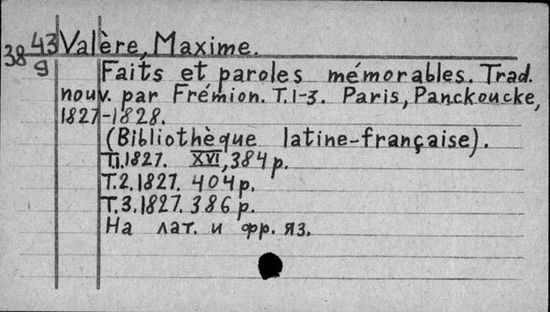 38 43/9
Valère, Maxime.
Faits et paroles mémorables. Trad.
nouv. par Frémion. T.1-3. Paris, Panckoucke,
1827-1828.
(Bibliothèque latine-française).
T.1.1827. XVI, 384 p.
T.2.1827. 404 p.
T.3.1827. 386 p.
На лат. и фр. яз.